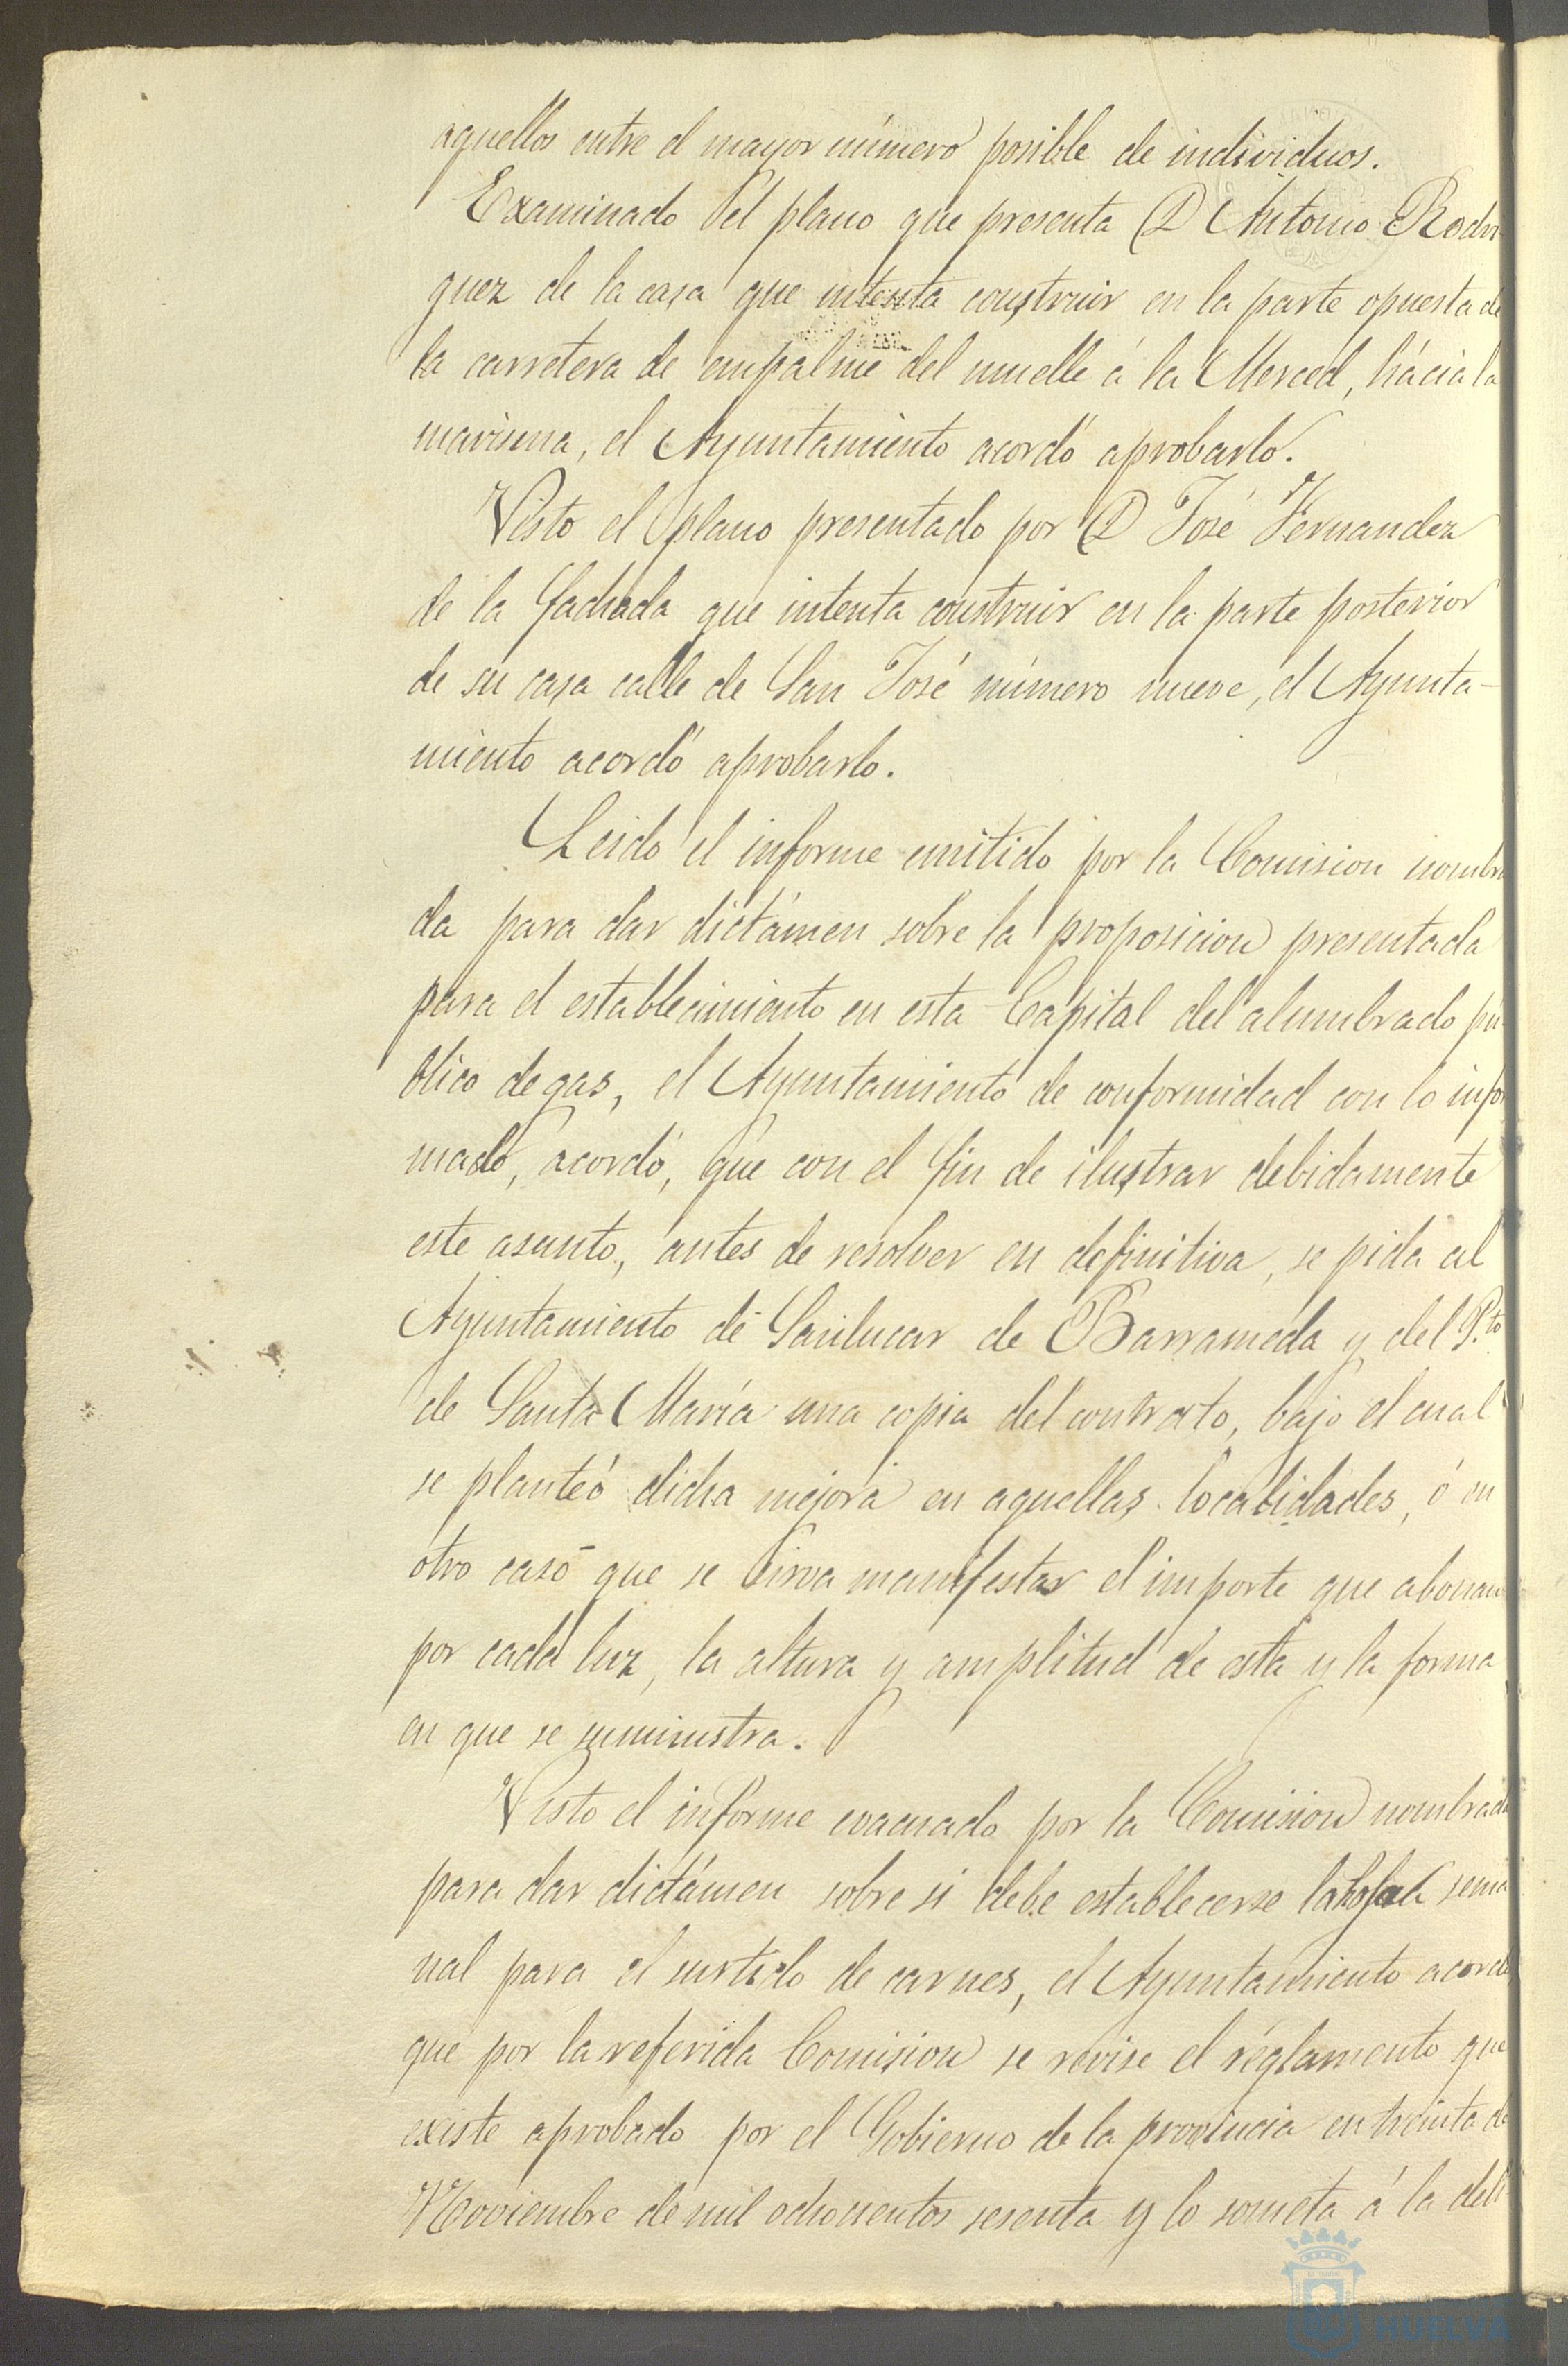 aquellos entre el mayor número posible de individuos.
Examinado el plano que presenta D Antonio Rodri
guez de la casa que intenta construir en la parte opuesta de
la carretera de empalme del muelle á la Merced, hácia la
marisma, el Ayuntamiento acordó aprobarlo.
Visto el plano presentado por D José Fernandez
de la fachada que intenta construir en la parte posterior
de su casa calle de San José número nueve, el Ayunta-
miento acordó aprobarlo.
Leido el informe emitido por la Comision nombra
da para dar dictámen sobre la proposicion presentada
para el establecimiento en esta Capital del alumbrado pú
blico de gas, el Ayuntamiento de conformidad con lo infor
mado, acordó, que con el fin de ilustrar debidamente
este asunto, antes de resolver en definitiva, se pida al
Ayuntamiento de Sanlucar de Barrameda y del P.to
de Santa María una copia del contrato, bajo el cual
se planteó dicha mejora en aquellas localidades, ó en
otro caso que se sirva manifestar el importe que abonan
por cada luz, la altura y amplitud de esta y la forma
en que se suministra.
Visto el informe evacuado por la Comision nombrada
para dar dictámen sobre si debe establecerse la sema
nal para el surtido de carnes, el Ayuntamiento acordó
que por la referida Comision se revise el réglamento que
existe aprobado por el Gobierno de la provincia en treinta de
Noviembre de mil ochocientos sesenta y lo someta á la deli
HUELVA